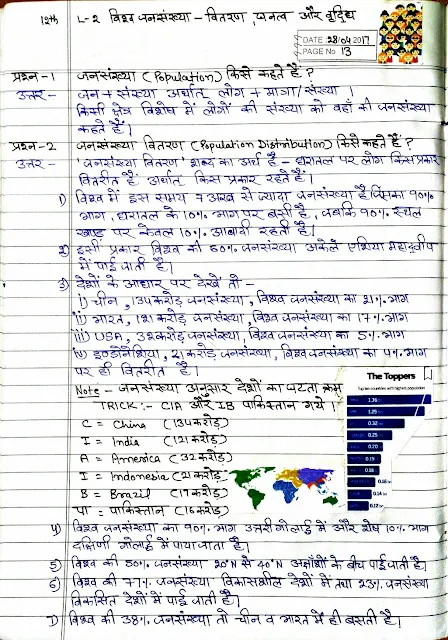 12th L-2 विश्व जनसंख्या - वितरण, घनत्व और वृद्धि
DATE: 28/04/2017
PAGE No 13
प्रश्न-1 जनसंख्या (Population) किसे कहते हैं?
उत्तर- जन + संख्या अर्थात् लोग + मात्रा/संख्या।
किसी क्षेत्र विशेष में लोगों की संख्या को वहाँ की जनसंख्या
कहते हैं।
प्रश्न-2 जनसंख्या वितरण (Population Distribution) किसे कहते है?
उत्तर- 'जनसंख्या वितरण' शब्द का अर्थ है - धरातल पर लोग किस प्रकार
वितरीत है अर्थात् किस प्रकार रहते हैं।
1) विश्व में इस समय 7 अरब से ज्यादा जनसंख्या है जिसका 90%
भाग, धरातल के 10% भाग पर बसी है, जबकि 90% स्थल
खण्ड पर केवल 10% आबादी रहती है।
2) इसी प्रकार विश्व की 60% जनसंख्या अकेले एशिया महाद्वीप
में पाई जाती है।
3) देशों के आधार पर देखें तो -
i) चीन, 134 करोड़ जनसंख्या, विश्व जनसंख्या का 21% भाग
ii) भारत, 121 करोड़ जनसंख्या, विश्व जनसंख्या का 17% भाग
iii) USA, 32 करोड़ जनसंख्या, विश्व जनसंख्या का 5% भाग
iv) इण्डोनेशिया, 21 करोड़ जनसंख्या, विश्व जनसंख्या का 4% भाग
पर ही वितरित है।
Note - जनसंख्या अनुसार देशों का घटता क्रम
TRICK :- CIA और IB पाकिस्तान गये।
C = China (134 करोड़)
I = India (121 करोड़)
A = America (32 करोड़)
I = Indonesia (21 करोड़)
B = Brazil (19 करोड़)
पा = पाकिस्तान (16 करोड़)
The Toppers
Top ten countries with highest population
1.36
1.25
0.32
0.25
0.20
0.19
0.18
0.14
0.12
4) विश्व जनसंख्या का 90% भाग उत्तरी गोलार्द्ध में और शेष 10% भाग
दक्षिणी गोलार्द्ध में पाया जाता है।
5) विश्व की 50% जनसंख्या 20°N से 40°N अक्षांशों के बीच पाई जाती है।
6) विश्व की 77% जनसंख्या विकासशील देशों में तथा 23% जनसंख्या
विकसित देशों में पाई जाती है।
7) विश्व की 38% जनसंख्या तो चीन व भारत में ही बसती है।